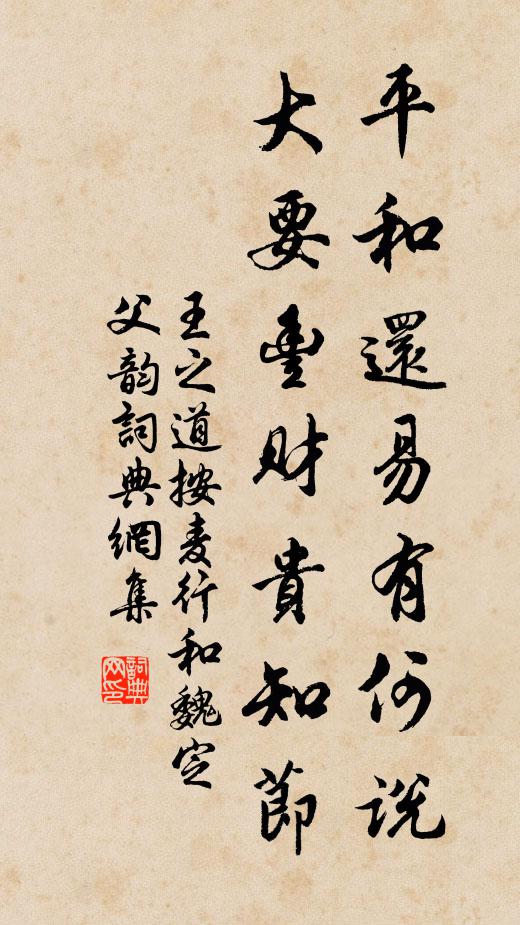 平和還易有何說
大要豐財貴知節
王之道按麦行和魏定
父韵詞典網集
詞典网印